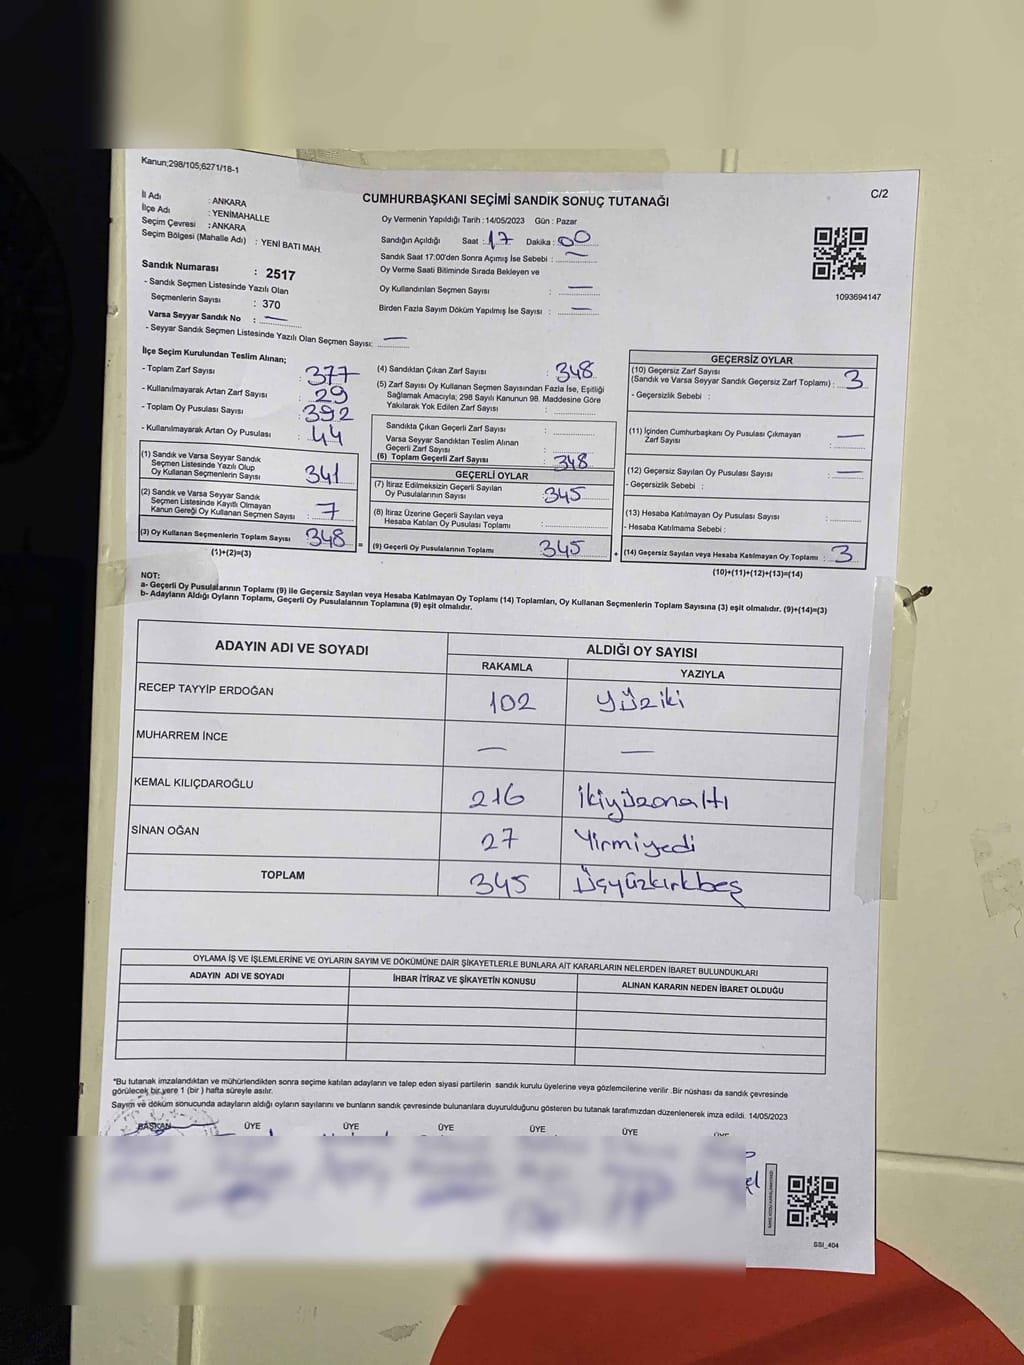 Kanun;298/105;6271/18-1
C/2
CUMHURBAŞKANI SEÇİMİ SANDIK SONUÇ TUTANAĞI
İl Adı : ANKARA
İlçe Adı : YENİMAHALLE
Seçim Çevresi : ANKARA
Seçim Bölgesi (Mahalle Adı) : YENİ BATI MAH.
Sandık Numarası : 2517
- Sandık Seçmen Listesinde Yazılı Olan
Seçmenlerin Sayısı : 370
Varsa Seyyar Sandık No : —
- Seyyar Sandık Seçmen Listesinde Yazılı Olan Seçmen Sayısı: —
Oy Vermenin Yapıldığı Tarih : 14/05/2023 Gün : Pazar
Sandığın Açıldığı Saat : 17 Dakika : 00
Sandık Saat 17:00'den Sonra Açımış İse Sebebi : —
Oy Verme Saati Bitiminde Sırada Bekleyen ve
Oy Kullandırılan Seçmen Sayısı : —
Birden Fazla Sayım Döküm Yapılmış İse Sayısı : —
1093694147
İlçe Seçim Kurulundan Teslim Alınan;
- Toplam Zarf Sayısı : 377
- Kullanılmayarak Artan Zarf Sayısı : 29
- Toplam Oy Pusulası Sayısı : 392
- Kullanılmayarak Artan Oy Pusulası : 44
(1) Sandık ve Varsa Seyyar Sandık
Seçmen Listesinde Yazılı Olup
Oy Kullanan Seçmenlerin Sayısı : 341
(2) Sandık ve Varsa Seyyar Sandık
Seçmen Listesinde Kayıtlı Olmayan
Kanun Gereği Oy Kullanan Seçmen Sayısı : 7
(3) Oy Kullanan Seçmenlerin Toplam Sayısı : 348
(1)+(2)=(3)
(4) Sandıktan Çıkan Zarf Sayısı : 348
(5) Zarf Sayısı Oy Kullanan Seçmen Sayısından Fazla İse, Eşitliği
Sağlamak Amacıyla; 298 Sayılı Kanunun 98. Maddesine Göre
Yakılarak Yok Edilen Zarf Sayısı :
Sandıkta Çıkan Geçerli Zarf Sayısı :
Varsa Seyyar Sandıktan Teslim Alınan
Geçerli Zarf Sayısı :
(6) Toplam Geçerli Zarf Sayısı : 348
GEÇERLİ OYLAR
(7) İtiraz Edilmeksizin Geçerli Sayılan
Oy Pusulalarının Sayısı : 345
(8) İtiraz Üzerine Geçerli Sayılan veya
Hesaba Katılan Oy Pusulası Toplamı :
= (9) Geçerli Oy Pusulalarının Toplamı 345 +
GEÇERSİZ OYLAR
(10) Geçersiz Zarf Sayısı
(Sandık ve Varsa Seyyar Sandık Geçersiz Zarf Toplamı) : 3
- Geçersizlik Sebebi :
(11) İçinden Cumhurbaşkanı Oy Pusulası Çıkmayan
Zarf Sayısı : —
(12) Geçersiz Sayılan Oy Pusulası Sayısı : —
- Geçersizlik Sebebi :
(13) Hesaba Katılmayan Oy Pusulası Sayısı :
- Hesaba Katılmama Sebebi :
(14) Geçersiz Sayılan veya Hesaba Katılmayan Oy Toplamı : 3
(10)+(11)+(12)+(13)=(14)
NOT:
a- Geçerli Oy Pusulalarının Toplamı (9) ile Geçersiz Sayılan veya Hesaba Katılmayan Oy Toplamı (14) Toplamları, Oy Kullanan Seçmenlerin Toplam Sayısına (3) eşit olmalıdır. (9)+(14)=(3)
b- Adayların Aldığı Oyların Toplamı, Geçerli Oy Pusulalarının Toplamına (9) eşit olmalıdır.
ADAYIN ADI VE SOYADI ALDIĞI OY SAYISI
RAKAMLA YAZIYLA
RECEP TAYYİP ERDOĞAN 102 Yüziki
MUHARREM İNCE — —
KEMAL KILIÇDAROĞLU 216 İkiyüzonaltı
SİNAN OĞAN 27 Yirmiyedi
TOPLAM 345 Üçyüzkırkbeş
OYLAMA İŞ VE İŞLEMLERİNE VE OYLARIN SAYIM VE DÖKÜMÜNE DAİR ŞİKAYETLERLE BUNLARA AİT KARARLARIN NELERDEN İBARET BULUNDUKLARI
ADAYIN ADI VE SOYADI İHBAR İTİRAZ VE ŞİKAYETİN KONUSU ALINAN KARARIN NEDEN İBARET OLDUĞU
*Bu tutanak imzalandıktan ve mühürlendikten sonra seçime katılan adayların ve talep eden siyasi partilerin sandık kurulu üyelerine veya gözlemcilerine verilir .Bir nüshası da sandık çevresinde
görülecek bir yere 1 (bir ) hafta süreyle asılır.
Sayım ve döküm sonucunda adayların aldığı oyların sayılarını ve bunların sandık çevresinde bulunanlara duyurulduğunu gösteren bu tutanak tarafımızdan düzenlenerek imza edildi. 14/05/2023
BAŞKAN ÜYE ÜYE ÜYE ÜYE ÜYE ÜYE
SSI_404